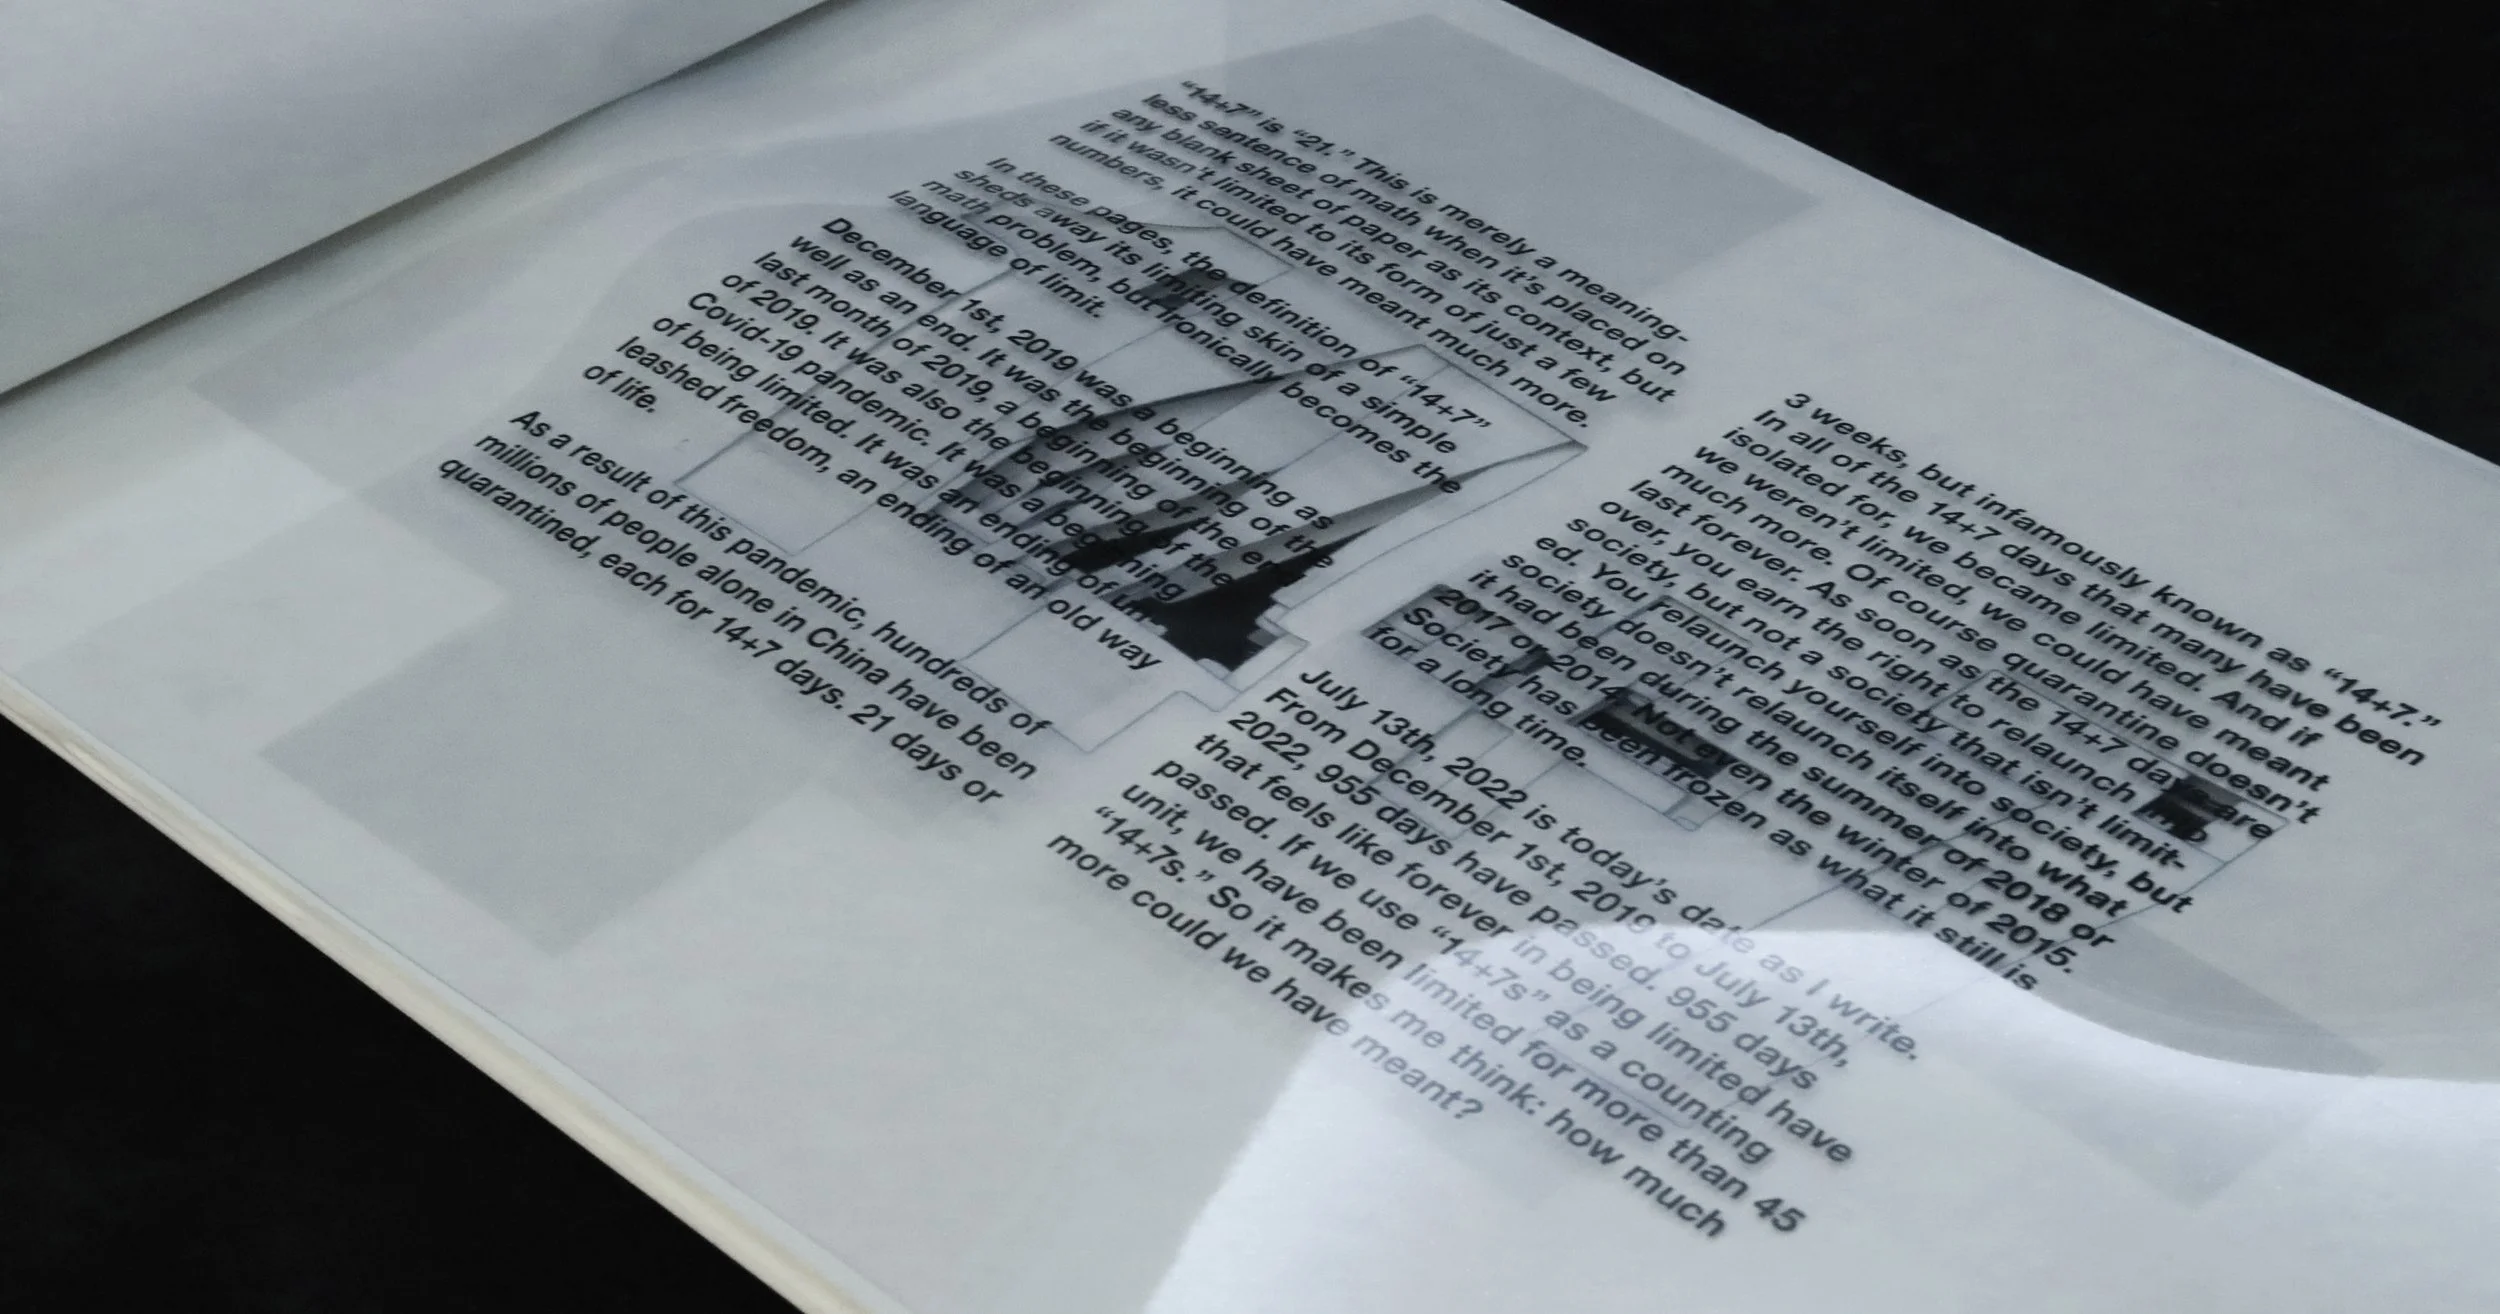 “14+7” is “21.” This is merely a meaning-
less sentence of math when it’s placed on
any blank sheet of paper as its context, but
if it wasn’t limited to its form of just a few
numbers, it could have meant much more.
In these pages, the definition of “14+7”
sheds away its limiting skin of a simple
math problem, but ironically becomes the
language of limit.
December 1st, 2019 was a beginning as
well as an end. It was the beginning of the
last month of 2019, a beginning of the end
of 2019. It was also the beginning of the
Covid-19 pandemic. It was a beginning
of being limited. It was an ending of un-
leashed freedom, an ending of an old way
of life.
As a result of this pandemic, hundreds of
millions of people alone in China have been
quarantined, each for 14+7 days. 21 days or
3 weeks, but infamously known as “14+7.”
In all of the 14+7 days that many have been
isolated for, we became limited. And if
we weren’t limited, we could have meant
much more. Of course quarantine doesn’t
last forever. As soon as the 14+7 days are
over, you earn the right to relaunch into
society, but not a society that isn’t limit-
ed. You relaunch yourself into society, but
society doesn’t relaunch itself into what
it had been during the summer of 2018 or
2017 or 2014. Not even the winter of 2015.
Society has been frozen as what it still is
for a long time.
July 13th, 2022 is today’s date as I write.
From December 1st, 2019 to July 13th,
2022, 955 days have passed. 955 days
that feels like forever in being limited have
passed. If we use “14+7s” as a counting
unit, we have been limited for more than 45
“14+7s.” So it makes me think: how much
more could we have meant?